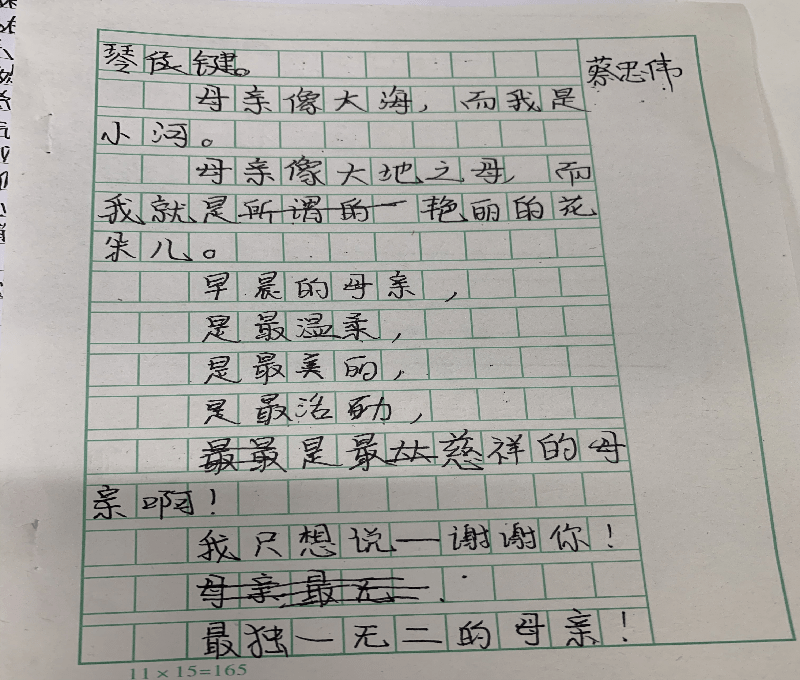 琴伎键。
蔡思伟
母亲像大海，而我是
小河。
母亲像大地之母，而
我就是所谓的一艳丽的花
朵儿。
早晨的母亲，
是最温柔，
是最美的，
是最活动，
最最是最慈祥的母
亲啊！
我只想说—谢谢你！
母亲最无二
最独一无二的母亲！
11×15=165